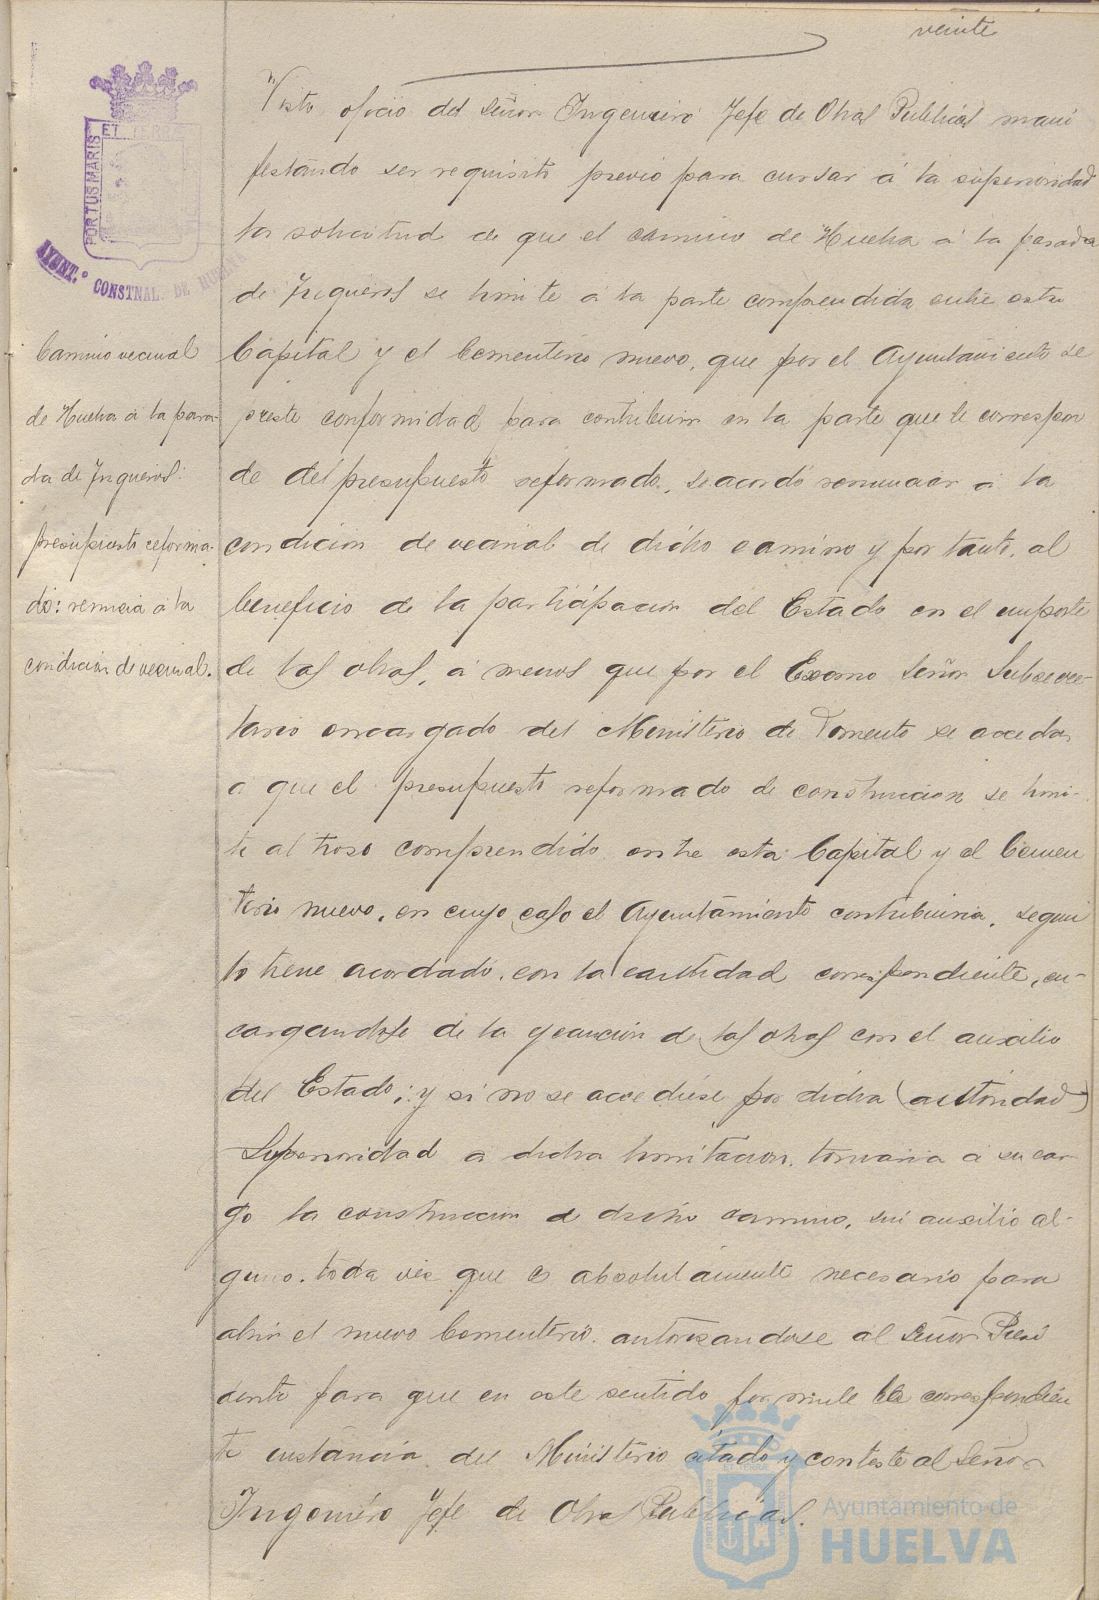 veinte
Visto oficio del Señor Ingeniero Jefe de Obras Publicas mani
festando ser requisito previo para cursar á la superioridad
la solicitud de que el camino de Huelva á la parada
de Jigueros se limite á la parte comprendida entre esta
Capital y el Cementerio nuevo, que por el Ayuntamiento se
preste conformidad para contribuir en la parte que le correspon
de del presupuesto reformado, se acordó renunciar á la
condición de vecinal de dicho camino y por tanto, al
beneficio de la participación del Estado en el importe
de las obras, á menos que por el Excmo Señor Subsecre-
tario encargado del Ministerio de Fomento se acceda
a que el presupuesto reformado de construcción se limi-
te al trozo comprendido entre esta Capital y el Cemen
terio nuevo, en cuyo caso el Ayuntamiento contribuiria, segun
lo tiene acordado, con la cantidad correspondiente, en-
cargandose de la ejecución de las obras con el auxilio
del Estado; y si no se accediese por dicha (autoridad)
Superioridad á dicha limitación, tomaria á su car-
go la construcción de dicho camino, sin auxilio al-
guno, toda vez que es absolutamente necesario para
abrir el nuevo Cementerio, autorizandose al Señor Presi
dente para que en este sentido formule la correspondien
te instancia del Ministerio citado y conteste al Señor
Ingeniero Jefe de Obras Publicas.
Camino vecinal
de Huelva á la para-
da de Jigueros:
presupuesto reforma-
do: renuncia á la
condición de vecinal.
PORTUS MARIS
ET TERRAE
AYUNT.º CONSTNAL. DE HUELVA
Ayuntamiento de
HUELVA